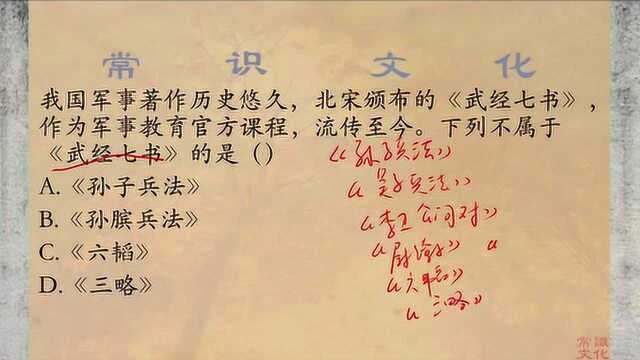 常识文化
我国军事著作历史悠久，北宋颁布的《武经七书》，
作为军事教育官方课程，流传至今。下列不属于
《武经七书》的是（）
A.《孙子兵法》
B.《孙膑兵法》
C.《六韬》
D.《三略》
《孙子兵法》
《吴子兵法》
《李卫公问对》
《尉缭子》《
《六韬》
《三略》
常識
文化